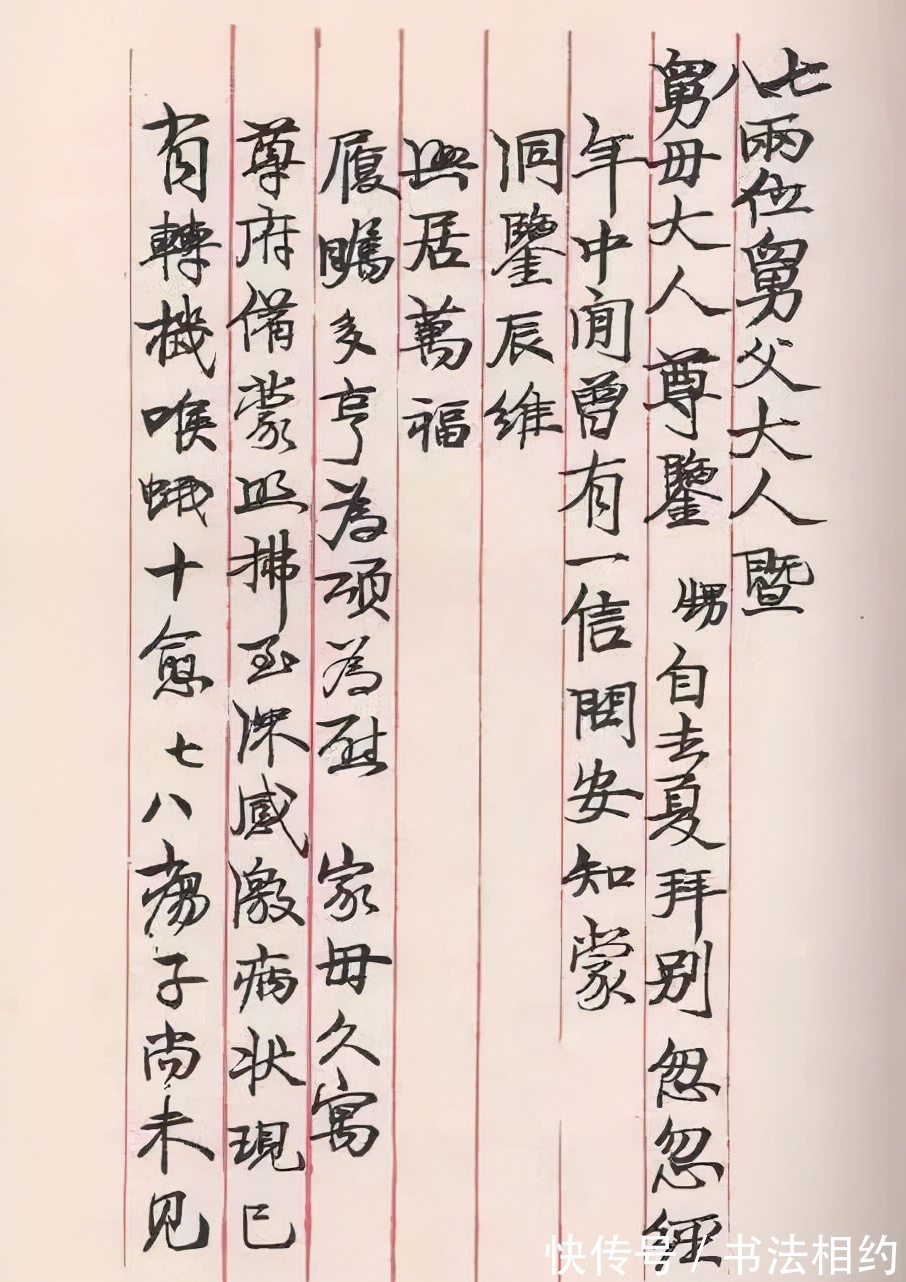 七八兩位舅父大人暨
舅母大人尊鑒 甥自去夏拜别忽忽經
年中間曾有一信問安知蒙
洞鑒辰維
興居萬福
履瞩多亨為頌為慰 家母久寓
尊府備蒙照拂至深感激病状現已
有轉機喉蛾十愈七八瘍子尚未見
快传号/书法相约